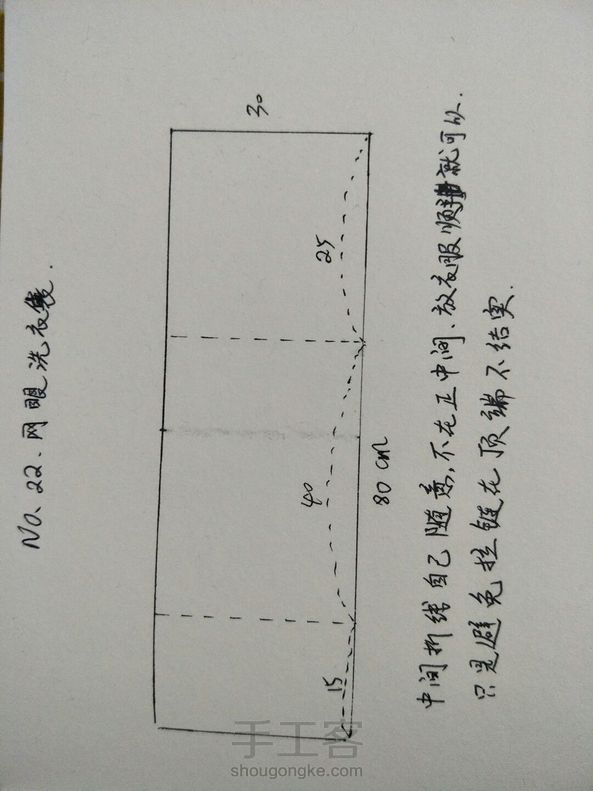 NO、22、网眼洗衣袋.
30
25
40
80 cm
15
中间折线自己随意，不在正中间、放衣服顺手就可以.
只是避免拉链在顶端不结实.
手工客
shougongke.com